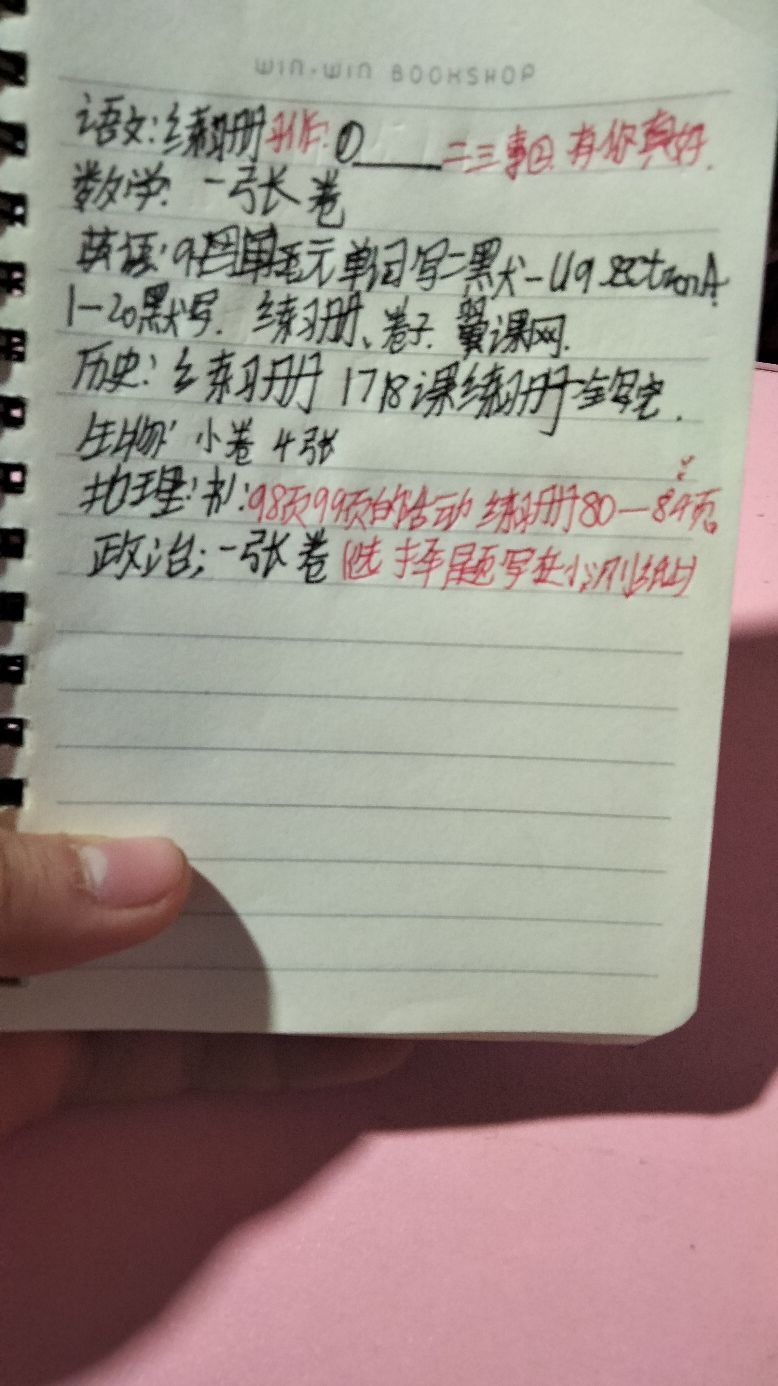 WIN-WIN BOOKSHOP
语文:练习册 ①____二三事② 有你真好.
数学: 一张卷
英语:9单元单词写二黑犬-U9 sectionA
1-20默写. 练习册、卷子 翼课网.
历史:练习册 17 18课练习册全写完.
生物:小卷 4张
地理:书:98页99页的活动 练习册80—84页。
政治:一张卷(选择题写在小测纸上)